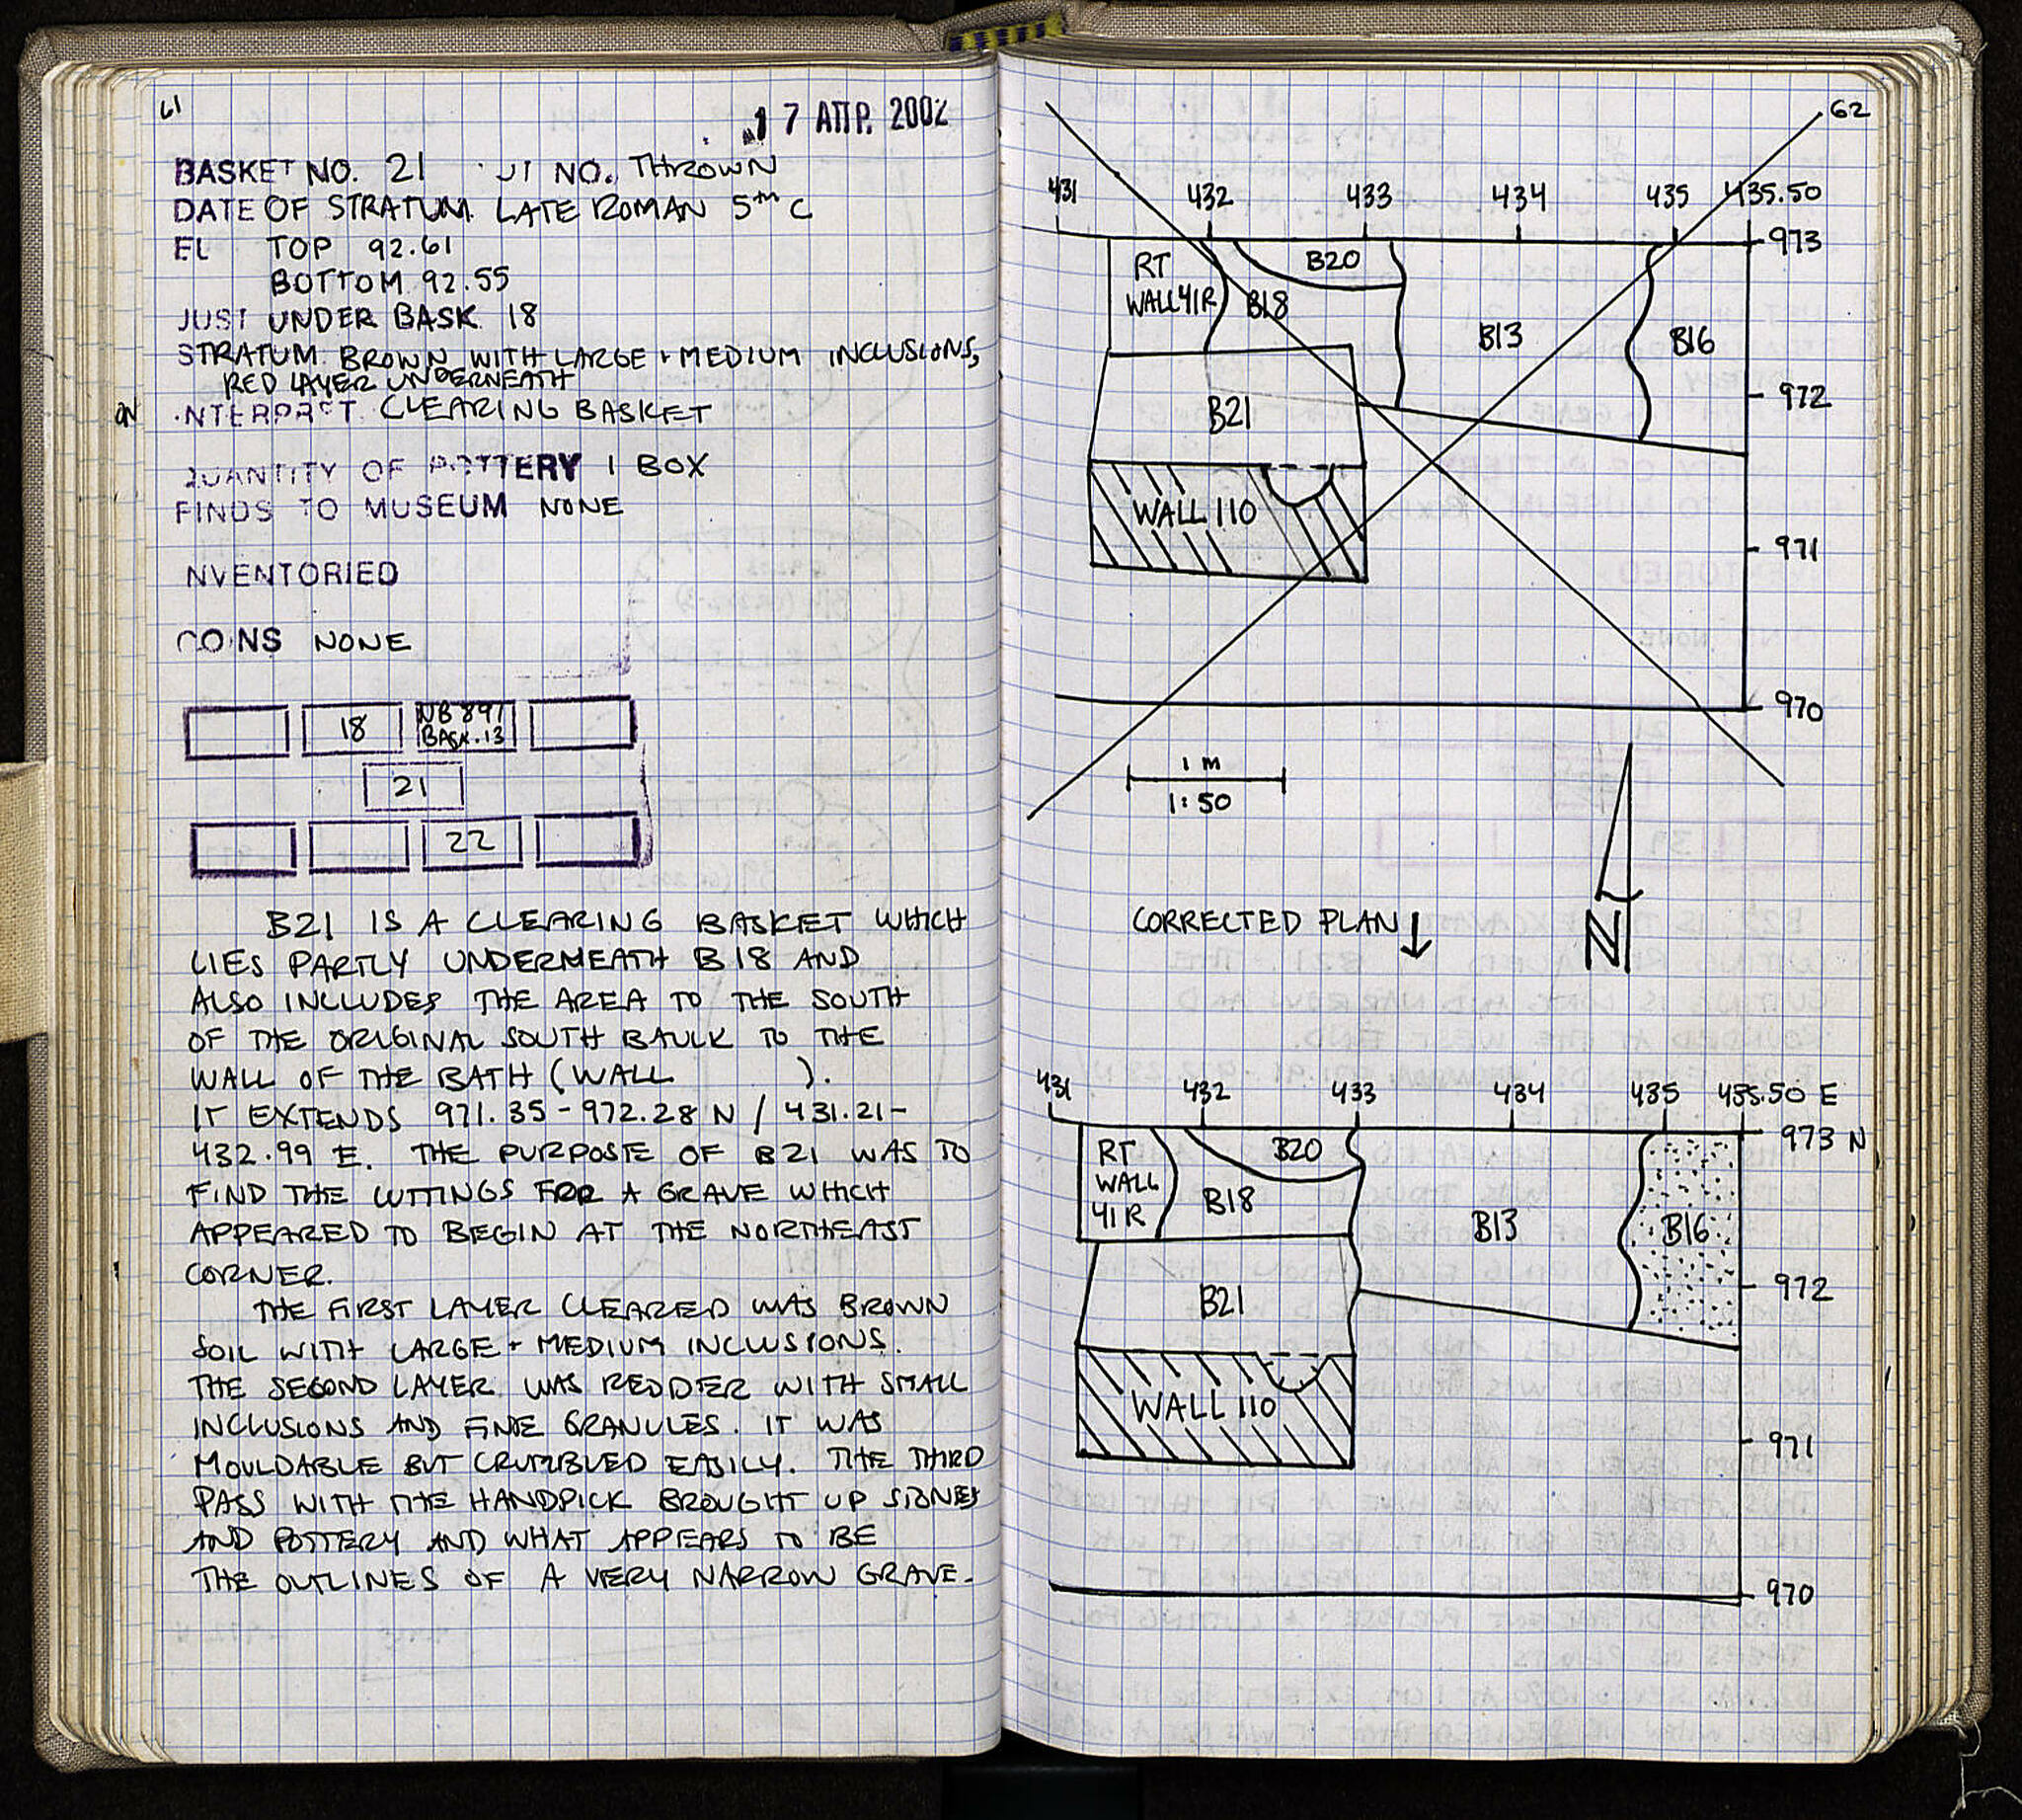 61
17 ΑΠΡ. 2002
BASKET NO. 21 UT NO. THROWN
DATE OF STRATUM LATE ROMAN 5TH C
EL TOP 92.61
BOTTOM 92.55
JUST UNDER BASK 18
STRATUM BROWN WITH LARGE + MEDIUM INCLUSIONS,
RED LAYER UNDERNEATH
NTERPRET. CLEARING BASKET
QUANTITY OF POTTERY 1 BOX
FINDS TO MUSEUM NONE
NVENTORIED
COINS NONE
18 NB 897 BASK. 13
21
22
B21 IS A CLEARING BASKET WHICH
LIES PARTLY UNDERNEATH B18 AND
ALSO INCLUDES THE AREA TO THE SOUTH
OF THE ORIGINAL SOUTH BAULK TO THE
WALL OF THE BATH (WALL ).
IT EXTENDS 971.35-972.28 N / 431.21-
432.99 E. THE PURPOSE OF B21 WAS TO
FIND THE CUTTINGS FOR A GRAVE WHICH
APPEARED TO BEGIN AT THE NORTHEAST
CORNER.
THE FIRST LAYER CLEARED WAS BROWN
SOIL WITH LARGE + MEDIUM INCLUSIONS.
THE SECOND LAYER WAS REDDER WITH SMALL
INCLUSIONS AND FINE GRANULES. IT WAS
MOULDABLE BUT CRUMBLED EASILY. THE THIRD
PASS WITH THE HANDPICK BROUGHT UP STONES
AND POTTERY AND WHAT APPEARS TO BE
THE OUTLINES OF A VERY NARROW GRAVE.
62
431 432 433 434 435 435.50
973
RT
WALL 41R
B20
B18
B13
B16
972
B21
WALL 110
971
970
1 M
1:50
N
CORRECTED PLAN ↓
431 432 433 434 435 435.50 E
973 N
RT
WALL
41R
B20
B18
B13
B16
972
B21
WALL 110
971
970